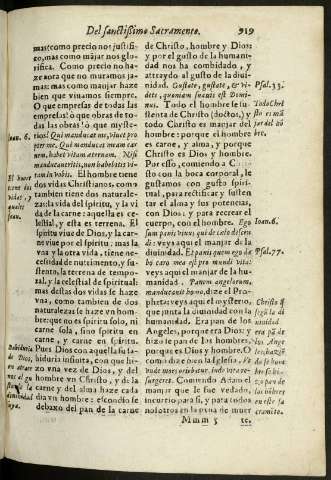 Del sanctissimo Sacramento.
919
mas(como precio nos justifi-
co, mas como májar nos glo-
rifica. Como precio no ha-
ze aora que no muramos ja-
mas: mas como manjar haze
bien que viuamos siempre.
O que empresas de todas las
empresas! ò que obras de to-
das las obras! ò que myste-
rios! Qui manducat me, viuet pro
pter me. Qui manducat meam car
nem, habet vitam aeternam.
manducaueritis, non habebitis vi-
tam in vobis. El hombre tiene
dos vidas Christianos, como
tambien tiene dos naturale-
zas: la vida del spiritu, y la vi
da de la carne: aquella es ce-
lestial, y esta es terrena. El
spiritu viue de Dios, y la car-
ne viue por el spiritu; mas la
vna y la otra vida, tiene ne-
cessidad de nutrimento, y su-
stento, la terrena de tempo-
ral, y la celestial de spiritual:
mas destas dos vidas se haze
vna, como tambien de dos
naturalezas se haze vn hom-
bre: que no es spiritu solo, ni
carne sola, sino spiritu en
carne, y carne en spiritu.
Pues Dios con aquella su sa-
biduria infinita, con que hi-
zo vna vez de Dios, y del
hombre vn Christo, y de la
carne y del alma haze cada
dia vn hombre: escondio se
debaxo del pan de la carne
Ioan. 6.
El hombre
tiene dos
vidas, y
quales
sean.
Sabiduria
de Dios,
de Christo, hombre y Dios:
y por el gusto de la humani-
dad nos ha combidado, y
attraydo al gusto de la diui-
nidad. Gustate, gustate, & vi-
dete, quoniam suauis est Domi-
nus. Todo el hombre se su-
stenta de Christo (doctos), y
todo Christo es manjar del
hombre: porque el hombre
es carne, y alma, y porque
Christo es Dios y hombre.
Por esso, comiendo a Chri-
sto con la boca corporal, le
gustamos con gusto spiri-
tual, para rectificar, y susten
tar el alma y sus potencias,
con Dios: y para recrear el
cuerpo, con el hombre. Ego
sum panis viuus qui de caelo descen
di: veys aqui el manjar de la
diuinidad. Et panis quem ego da
bo caro mea est pro mundi vita:
veys aqui el manjar de la hu-
manidad. Panem angelorum,
manducauit homo, dize el Pro-
pheta: veys aqui el mysterio,
que junta la diuinidad con la
humanidad. Era pan de los
Angeles, porque era Dios; y
hizo se pan de los hombres,
porque es Dios y Hombre. O
como dize bien la Iglesia, Vn-
de mors oriebatur, inde vita re-
surgeret. Comiendo Adam el
manjar que le fue vedado,
incurrio para si, y para todos
nosotros en la pena de muer
Psal. 33.
Todo Chri
sto es má
jar del hó
bre.
Ioan. 6.
Psal. 77.
Mmm 5
te,